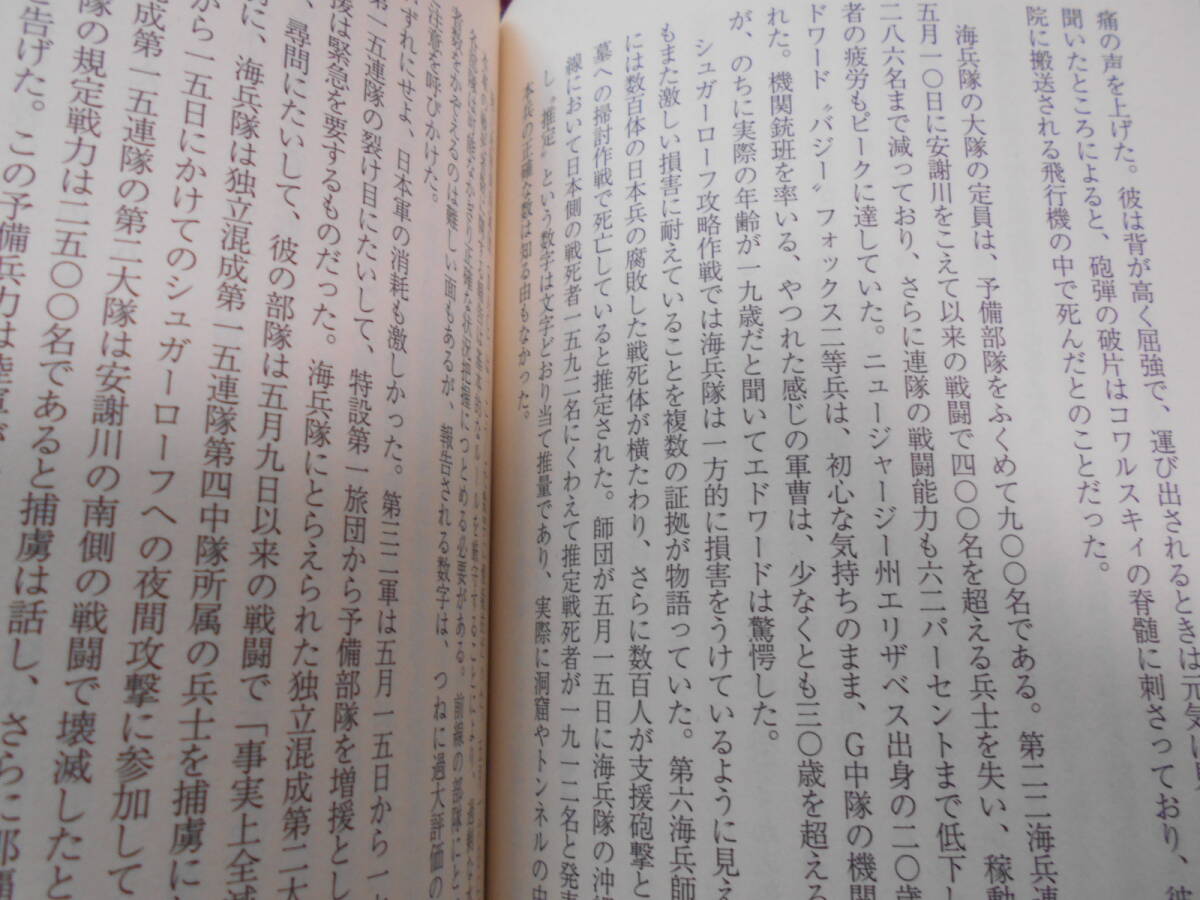 痛の声を上げた。彼は背が高く屈強で、運び出されるときは元気に
聞いたところによると、砲弾の破片はコワルスキィの脊髄に刺さっており、彼
院に搬送される飛行機の中で死んだとのことだった。
海兵隊の大隊の定員は、予備部隊をふくめて九〇〇名である。第二二海兵連
五月一〇日に安謝川をこえて以来の戦闘で四〇〇名を超える兵士を失い、稼動
二八六名まで減っており、さらに連隊の戦闘能力も六二パーセントまで低下し
者の疲労もピークに達していた。ニュージャージー州エリザベス出身の二〇歳
ドワード〝バジー〟フォックス二等兵は、初心な気持ちのまま、G中隊の機関
れた。機関銃班を率いる、やつれた感じの軍曹は、少なくとも三〇歳を超える
が、のちに実際の年齢が一九歳だと聞いてエドワードは驚愕した。
シュガーローフ攻略作戦では海兵隊は一方的に損害をうけているように見え
もまた激しい損害に耐えていることを複数の証拠が物語っていた。第六海兵師
には数百体の日本兵の腐敗した戦死体が横たわり、さらに数百人が支援砲撃と
墓への掃討作戦で死亡していると推定された。師団が五月一五日に海兵隊の沖縄
線において日本側の戦死者一五九二名にくわえて推定戦死者が一九一二名と発表
し〝推定〟という数字は文字どおり当て推量であり、実際に洞窟やトンネルの中
本兵の正確な数は知る由もなかった。
名部隊は可能なかぎり正確な状況把握につとめる必要がある。前線の部隊にと
者数をかぞえるのは難しい面もあるが、報告される数字は、つねに過大評価の
注意を呼びかけた。
ずれにせよ、日本軍の消耗も激しかった。第三二軍は五月一五日から一
第一五連隊の裂け目にたいして、特設第一旅団から予備部隊を増援とし
援は緊急を要するものだった。海兵隊にとらえられた独立混成第二大
、尋問にたいして、彼の部隊は五月九日以来の戦闘で「事実上全滅
に、海兵隊は独立混成第一五連隊第四中隊所属の兵士を捕虜に
から一五日にかけてのシュガーローフへの夜間攻撃に参加して
成第一五連隊の第二大隊は安謝川の南側の戦闘で壊滅したと
隊の規定戦力は二五〇〇名であると捕虜は話し、さらに那覇
と告げた。この予備兵力は陸軍が